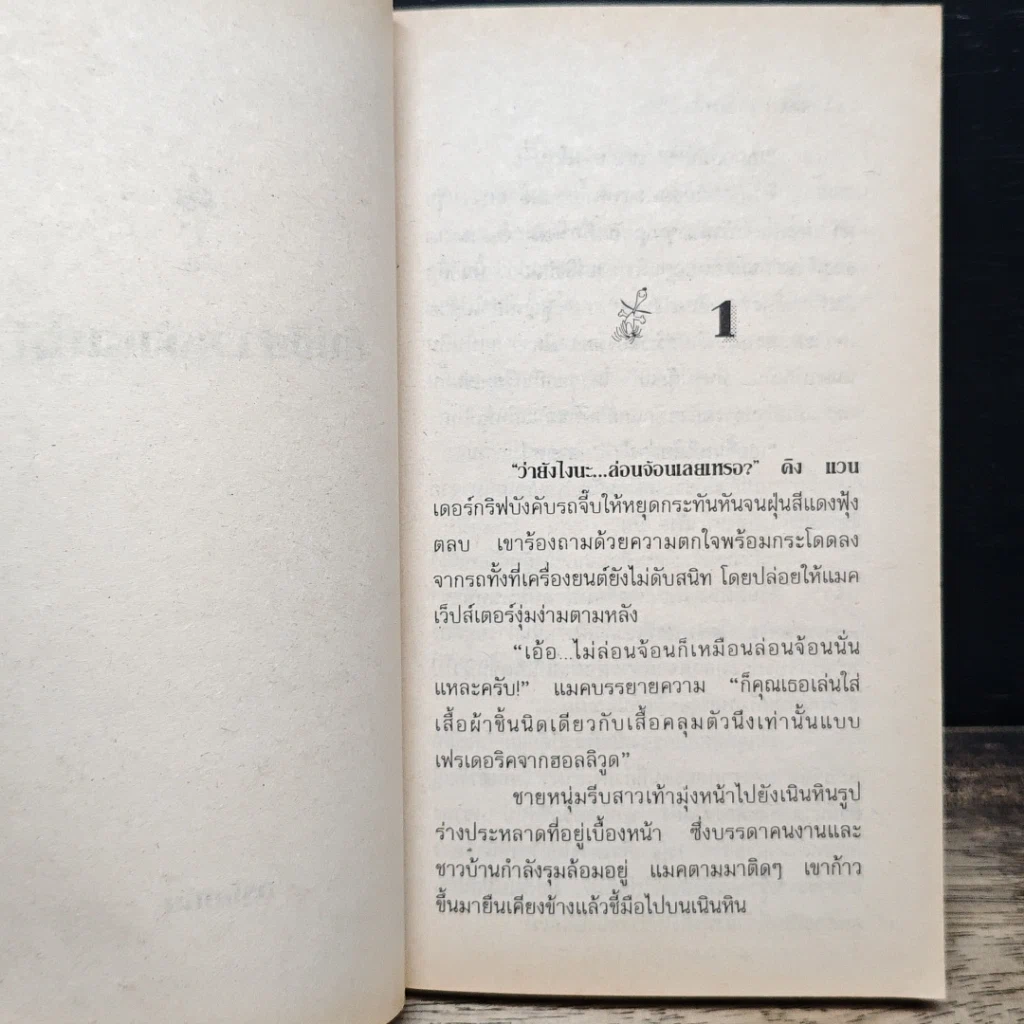 1
"ว่ายังไงนะ...ล่อนจ้อนเลยเหรอ?" คิง แวน
เดอร์กริฟบังคับรถจี๊บให้หยุดกระทันหันจนฝุ่นสีแดงฟุ้ง
ตลบ เขาร้องถามด้วยความตกใจพร้อมกระโดดลง
จากรถทั้งที่เครื่องยนต์ยังไม่ดับสนิท โดยปล่อยให้แมค
เว็ปส์เตอร์งุ่มง่ามตามหลัง
"เอ้อ...ไม่ล่อนจ้อนก็เหมือนล่อนจ้อนนั่น
แหละครับ!" แมคบรรยายความ "ก็คุณเธอเล่นใส่
เสื้อผ้าชิ้นนิดเดียวกับเสื้อคลุมตัวนึงเท่านั้นแบบ
เฟรเดอริคจากฮอลลิวูด"
ชายหนุ่มรีบสาวเท้ามุ่งหน้าไปยังเนินหินรูป
ร่างประหลาดที่อยู่เบื้องหน้า ซึ่งบรรดาคนงานและ
ชาวบ้านกำลังรุมล้อมอยู่ แมคตามมาติดๆ เขาก้าว
ขึ้นมายืนเคียงข้างแล้วชี้มือไปบนเนินหิน